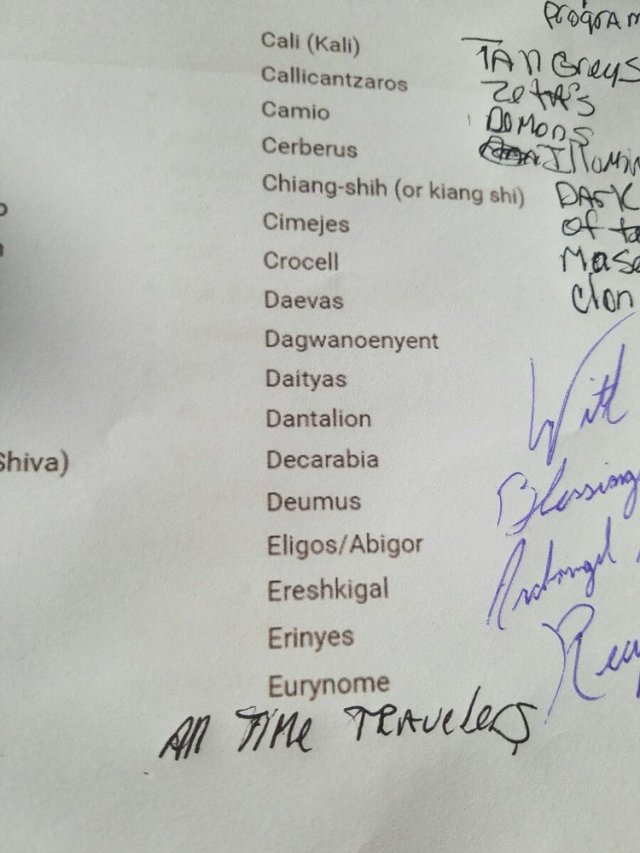 Shiva)
Cali (Kali)
Callicantzaros
Camio
Cerberus
Chiang-shih (or kiang shi)
Cimejes
Crocell
Daevas
Dagwanoenyent
Daityas
Dantalion
Decarabia
Deumus
Eligos/Abigor
Ereshkigal
Erinyes
Eurynome
All TIMe TRAVeLeRS
PROgRAM
TAll Greys
ZetA's
DeMoNS
IlloMiN
DARK
of ta
Mase
clon
With
Blessing